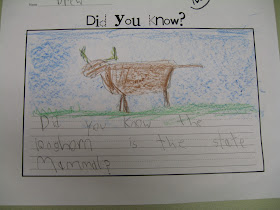 Drew
Did You Know?
Did you know the
bogham is the state
Mammal?